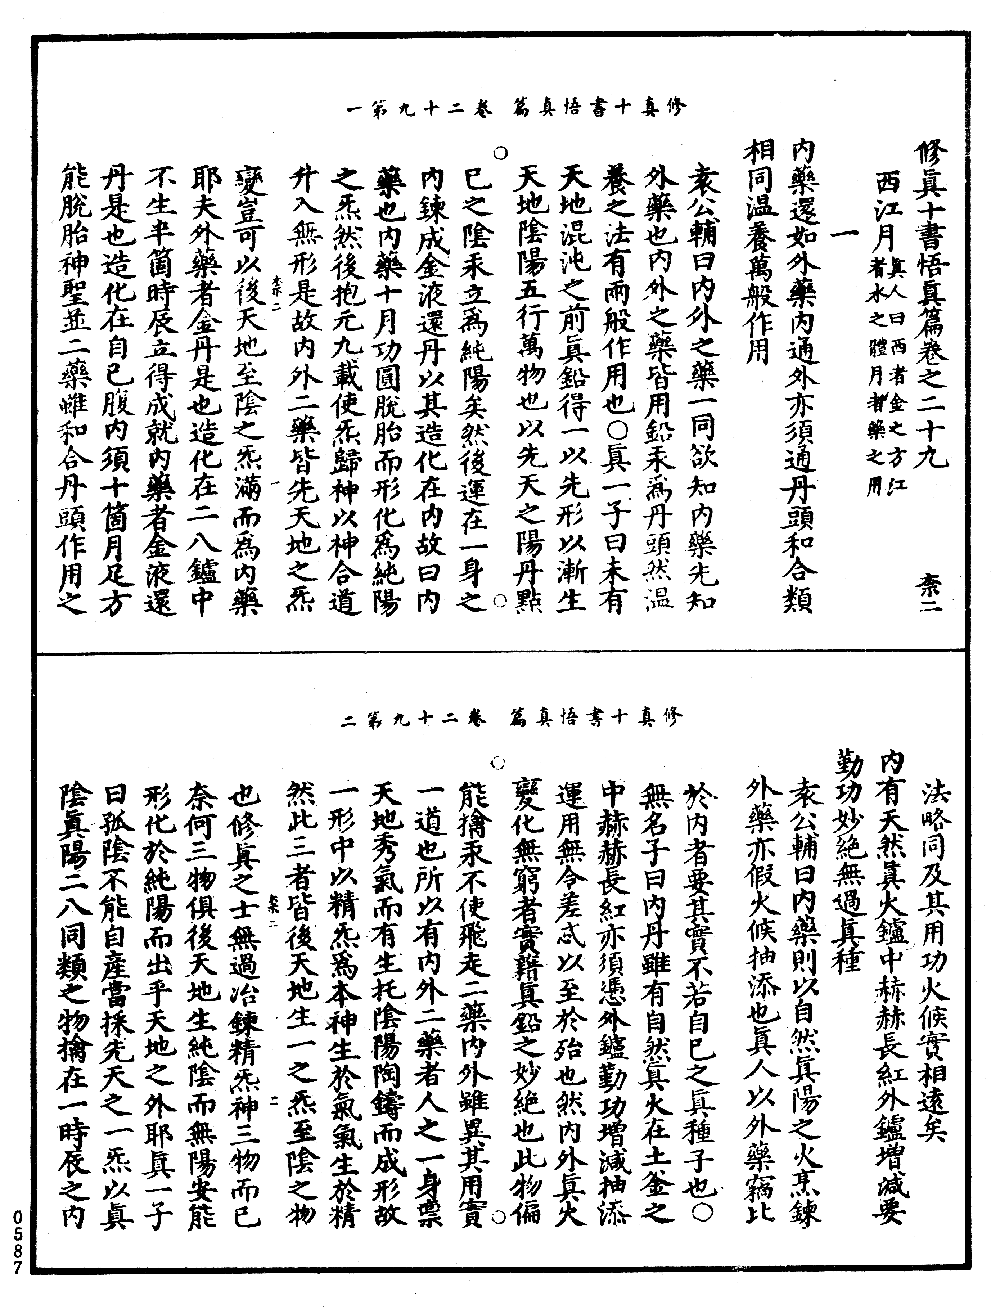 修真十書悟真篇　卷二十九第一
修眞十書悟眞篇卷之二十九　柰二
西江月眞人曰西者金之方江
者水之體月者藥之用
一
內藥還如外藥內通外亦須通丹頭和合類
相同溫養萬般作用
袁公輔曰內外之藥一同欲知內藥先知
外藥也內外之藥皆用鉛汞爲丹頭然溫
養之法有兩般作用也○眞一子曰未有
天地混沌之前眞鉛得一以先形以漸生
天地陰陽五行萬物也以先天之陽丹點
己之陰汞立爲純陽矣然後運在一身之
內鍊成金液還丹以其造化在內故曰內
藥也內藥十月功圓脫胎而形化爲純陽
之炁然後抱元九載使炁歸神以神合道
升入無形是故內外二藥皆先天地之炁
柰二　一
變豈可以後天地至陰之炁滿而爲內藥
耶夫外藥者金丹是也造化在二八鑪中
不生半箇時辰立得成就內藥者金液還
丹是也造化在自己腹內須十箇月足方
能脫胎神聖並二藥雖和合丹頭作用之
修真十書悟真篇　卷二十九第二
法略同及其用功火候實相遠矣
內有天然眞火鑪中赫赫長紅外鑪增減要
勤功妙絕無過真種
袁公輔曰內藥則以自然眞陽之火烹鍊
外藥亦假火候抽添也眞人以外藥竊比
於內者要其實不若自己之眞種子也○
無名子曰內丹雖有自然眞火在土釜之
中赫赫長紅亦須憑外鑪勤功增減抽添
運用無令差忒以至於殆也然內外眞火
變化無窮者實藉眞鉛之妙絕也此物偏
能擒汞不使飛走二藥內外雖異其用實
一道也所以有內外二藥者人之一身禀
天地秀氣而有生托陰陽陶鑄而成形故
一形中以精炁爲本神生於氣氣生於精
然此三者皆後天地生一之炁至陰之物
柰二　二
也修眞之士無過冶鍊精炁神三物而已
奈何三物俱後天地生純陰而無陽安能
形化於純陽而出乎天地之外耶眞一子
曰孤陰不能自產當採先天之一炁以眞
陰眞陽二八同類之物擒在一時辰之內
0587